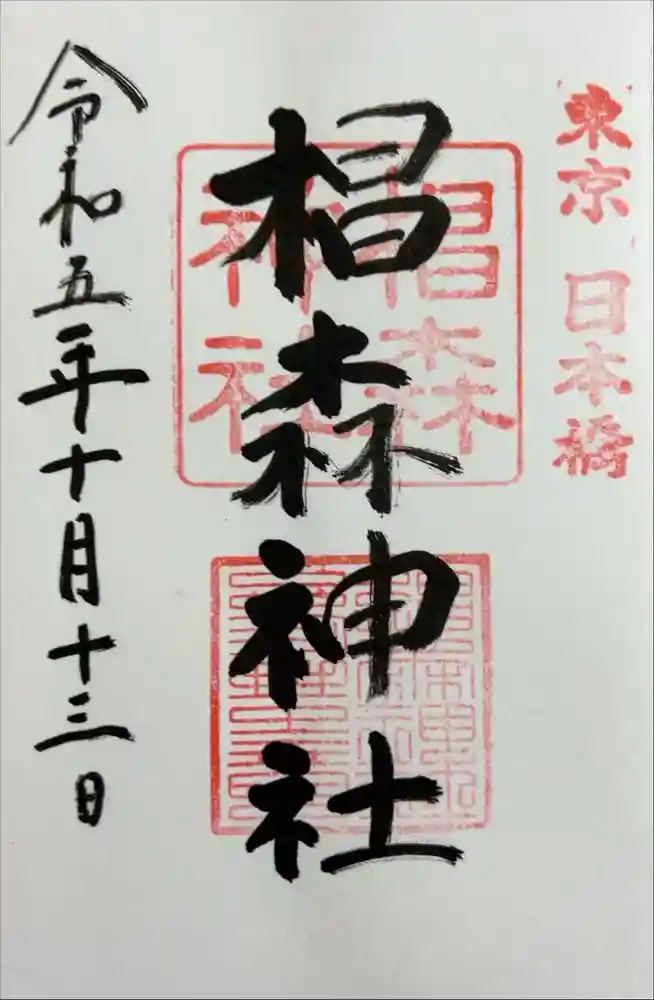 東京 日本橋
椙森神社
椙森
神社
令和五年十月十三日